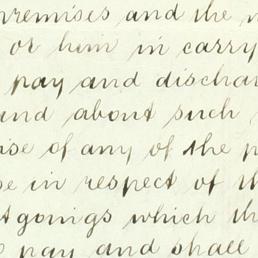 premises and the
or him in carry
pay and dischar
and about such
of any of the
in respect of th
goings which th
pay and shall